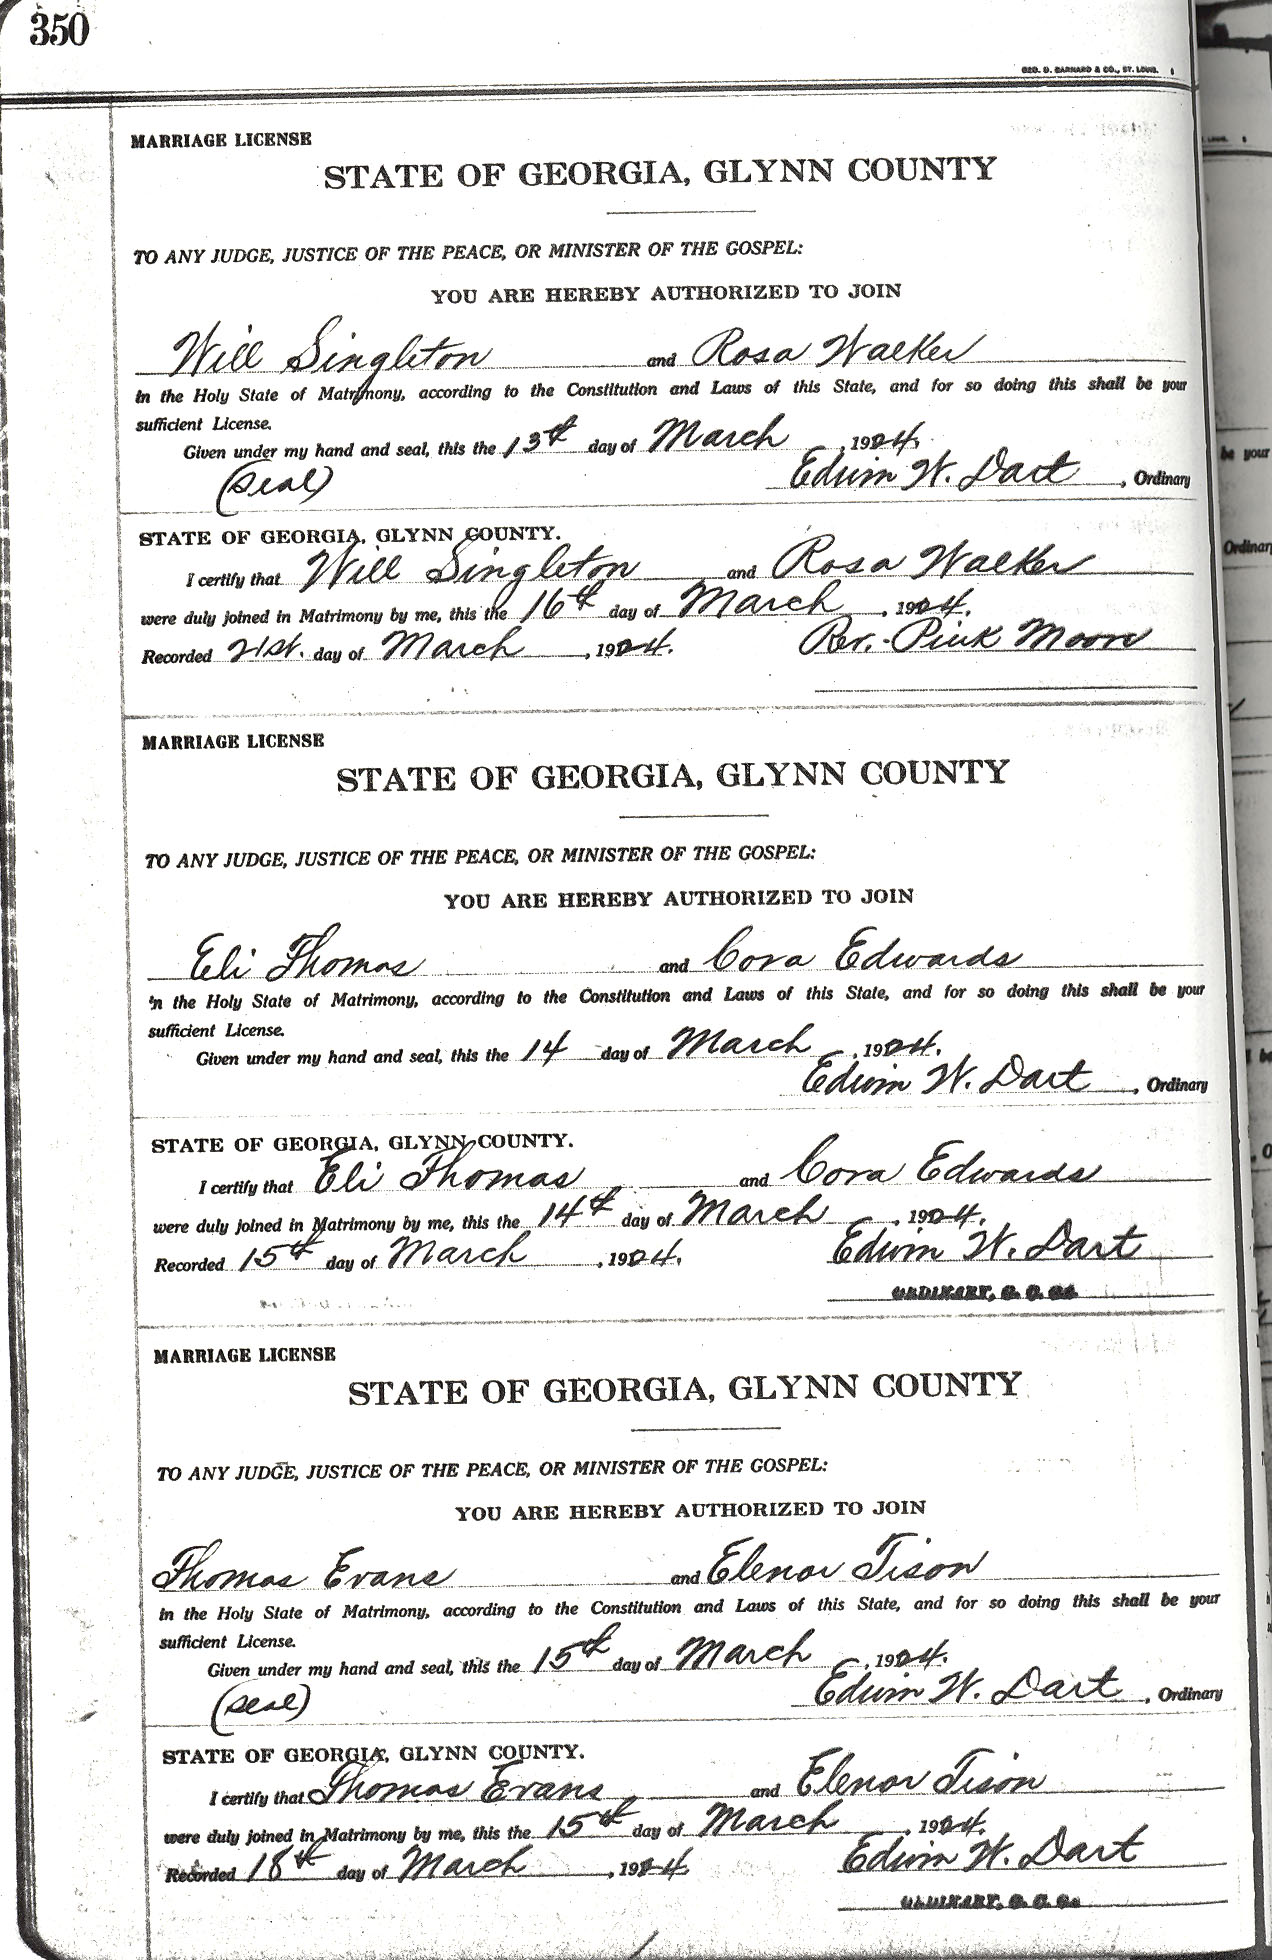 350
GEO. D. BARNARD & CO., ST. LOUIS.
MARRIAGE LICENSE
STATE OF GEORGIA, GLYNN COUNTY
TO ANY JUDGE, JUSTICE OF THE PEACE, OR MINISTER OF THE GOSPEL:
YOU ARE HEREBY AUTHORIZED TO JOIN
Will Singleton and Rosa Walker
in the Holy State of Matrimony, according to the Constitution and Laws of this State, and for so doing this shall be your
sufficient License.
Given under my hand and seal, this the 13th day of March, 1924.
(Seal) Edwin W. Dart, Ordinary
STATE OF GEORGIA, GLYNN COUNTY.
I certify that Will Singleton and Rosa Walker
were duly joined in Matrimony by me, this the 16th day of March, 1924.
Recorded 21st. day of March, 1924. Rev. Pink Moore
MARRIAGE LICENSE
STATE OF GEORGIA, GLYNN COUNTY
TO ANY JUDGE, JUSTICE OF THE PEACE, OR MINISTER OF THE GOSPEL:
YOU ARE HEREBY AUTHORIZED TO JOIN
Eli Thomas and Cora Edwards
in the Holy State of Matrimony, according to the Constitution and Laws of this State, and for so doing this shall be your
sufficient License.
Given under my hand and seal, this the 14 day of March, 1924.
Edwin W. Dart, Ordinary
STATE OF GEORGIA, GLYNN COUNTY.
I certify that Eli Thomas and Cora Edwards
were duly joined in Matrimony by me, this the 14th day of March, 1924.
Recorded 15th day of March, 1924. Edwin W. Dart
ORDINARY, G. C. GA.
MARRIAGE LICENSE
STATE OF GEORGIA, GLYNN COUNTY
TO ANY JUDGE, JUSTICE OF THE PEACE, OR MINISTER OF THE GOSPEL:
YOU ARE HEREBY AUTHORIZED TO JOIN
Thomas Evans and Elenor Tison
in the Holy State of Matrimony, according to the Constitution and Laws of this State, and for so doing this shall be your
sufficient License.
Given under my hand and seal, this the 15th day of March, 1924.
(Seal) Edwin W. Dart, Ordinary
STATE OF GEORGIA, GLYNN COUNTY.
I certify that Thomas Evans and Elenor Tison
were duly joined in Matrimony by me, this the 15th day of March, 1924.
Recorded 18th day of March, 1924 Edwin W. Dart
ORDINARY, G. C. GA.
be your
Ordinary